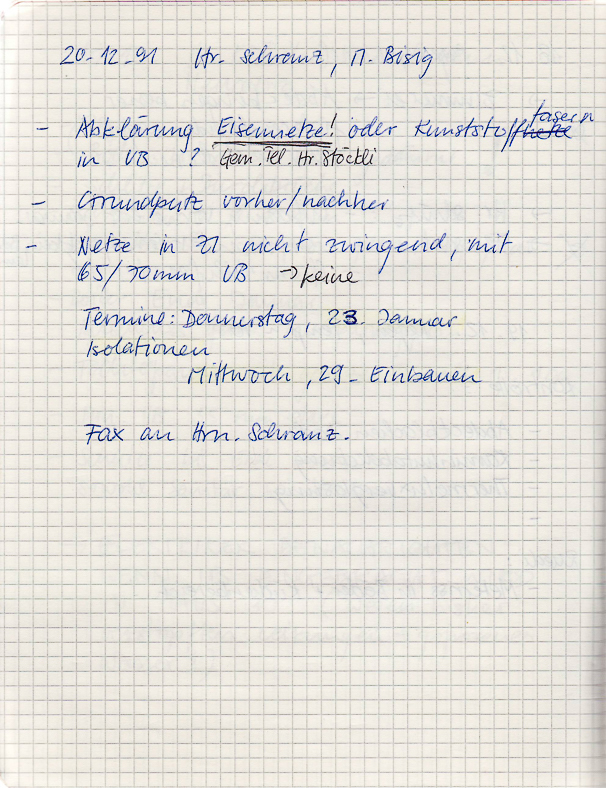 20-12-91 Hr. Schranz, M. Bisig
- Abklärung Eisennetze! oder Kunststofffasern
in UB ? Gem. Tel. Hr. Stöckli
- Grundputz vorher/nachher
- Netze in ZI nicht zwingend, mit
65/70mm UB → keine
Termine: Donnerstag, 23. Januar
Isolationen
Mittwoch, 29- Einbauen
Fax an Hrn. Schranz.